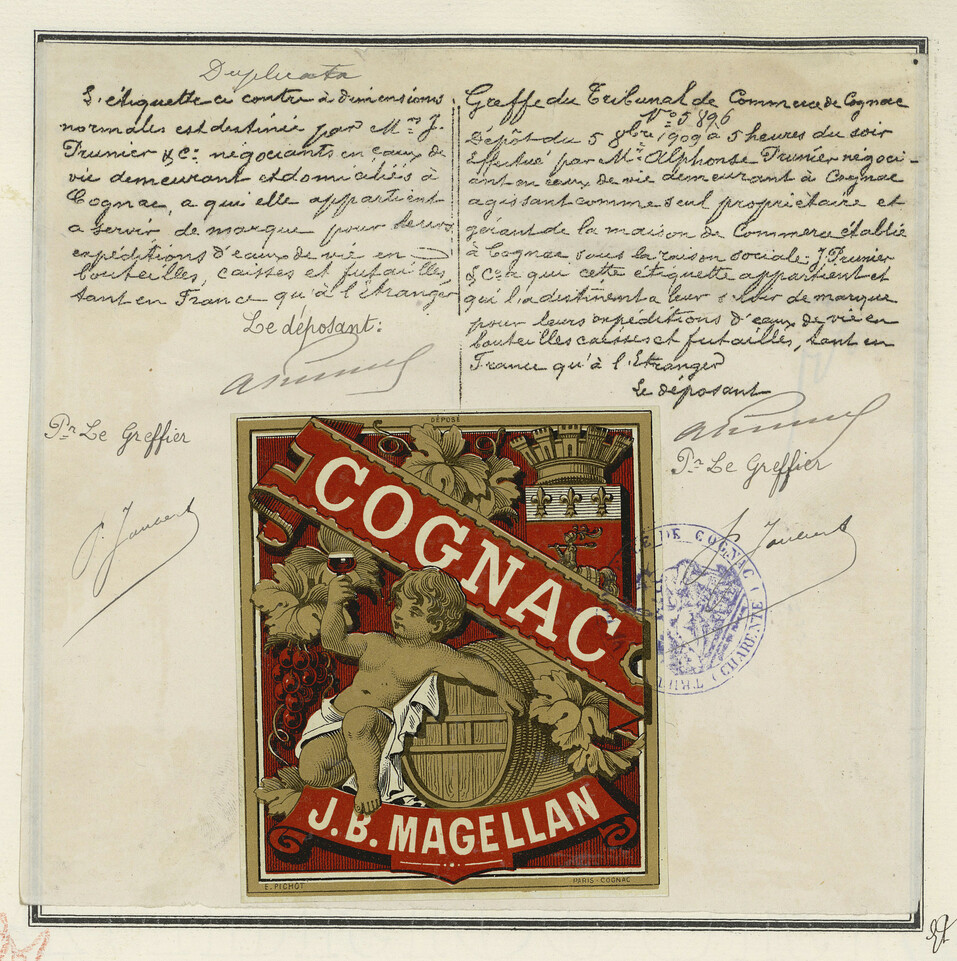 Duplicata
L'étiquette ci contre à dimensions
normales est destinée par Mm J.
Prunier & Cie négociants en eaux de
vie demeurant et domiciliés à
Cognac, a qui elle appartient
a servir de marque pour leurs
expéditions d'eaux de vie en
bouteilles, caisses et futailles
tant en France qu'à l'étranger
Le déposant:
Pr Le Greffier
Greffe du Tribunal de Commerce de Cognac
No 5896
Dépôt du 5 8bre 1909 à 5 heures du soir
Effectué par Mr Alphonse Prunier négoci-
ant en eaux de vie demeurant à Cognac
agissant comme seul propriétaire et
gérant de la maison de Commerce établie
à Cognac sous la raison sociale: J. Prunier
& Cie a qui cette étiquette appartient et
qui l'a destinent a leur servir de marque
pour leurs expéditions d'eaux de vie en
bouteilles caisses et futailles, tant en
France qu'à l'Etranger
Le déposant
Pr Le Greffier
DÉPOSÉ
COGNAC
J.B. MAGELLAN
E. PICHOT
PARIS-COGNAC
DE COGNAC (CHARENTE)